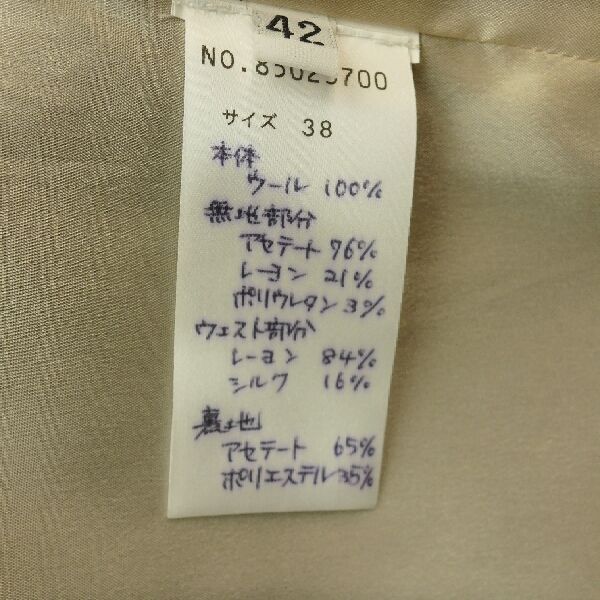 42
サイズ 38
本体
ウール 100%
無地部分
アセテート 76%
レーヨン 21%
ポリウレタン 3%
ウェスト部分
レーヨン 84%
シルク 16%
裏地
アセテート 65%
ポリエステル 35%